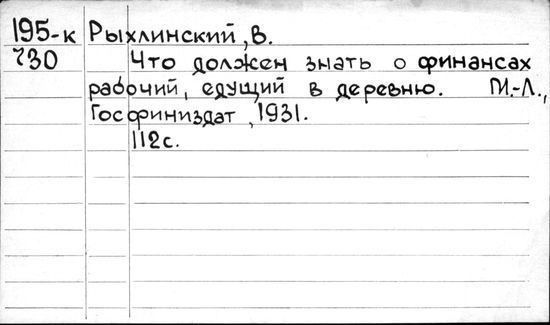 195-к Рыхлинский, В.
730 Что должен знать о финансах
рабочий, едущий в деревню. М.-Л.,
Госфиниздат, 1931.
112с.